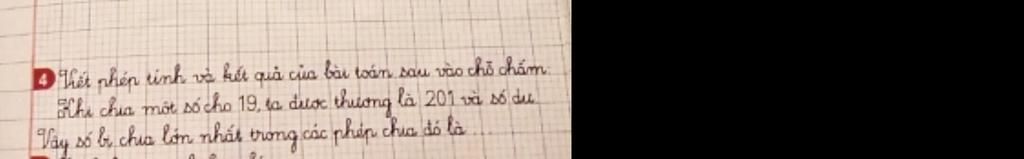 4 Viết phép tính và kết quả của bài toán sau vào chỗ chấm:
Khi chia một số cho 19, ta được thương là 201 và số dư
Vậy số bị chia lớn nhất trong các phép chia đó là ...